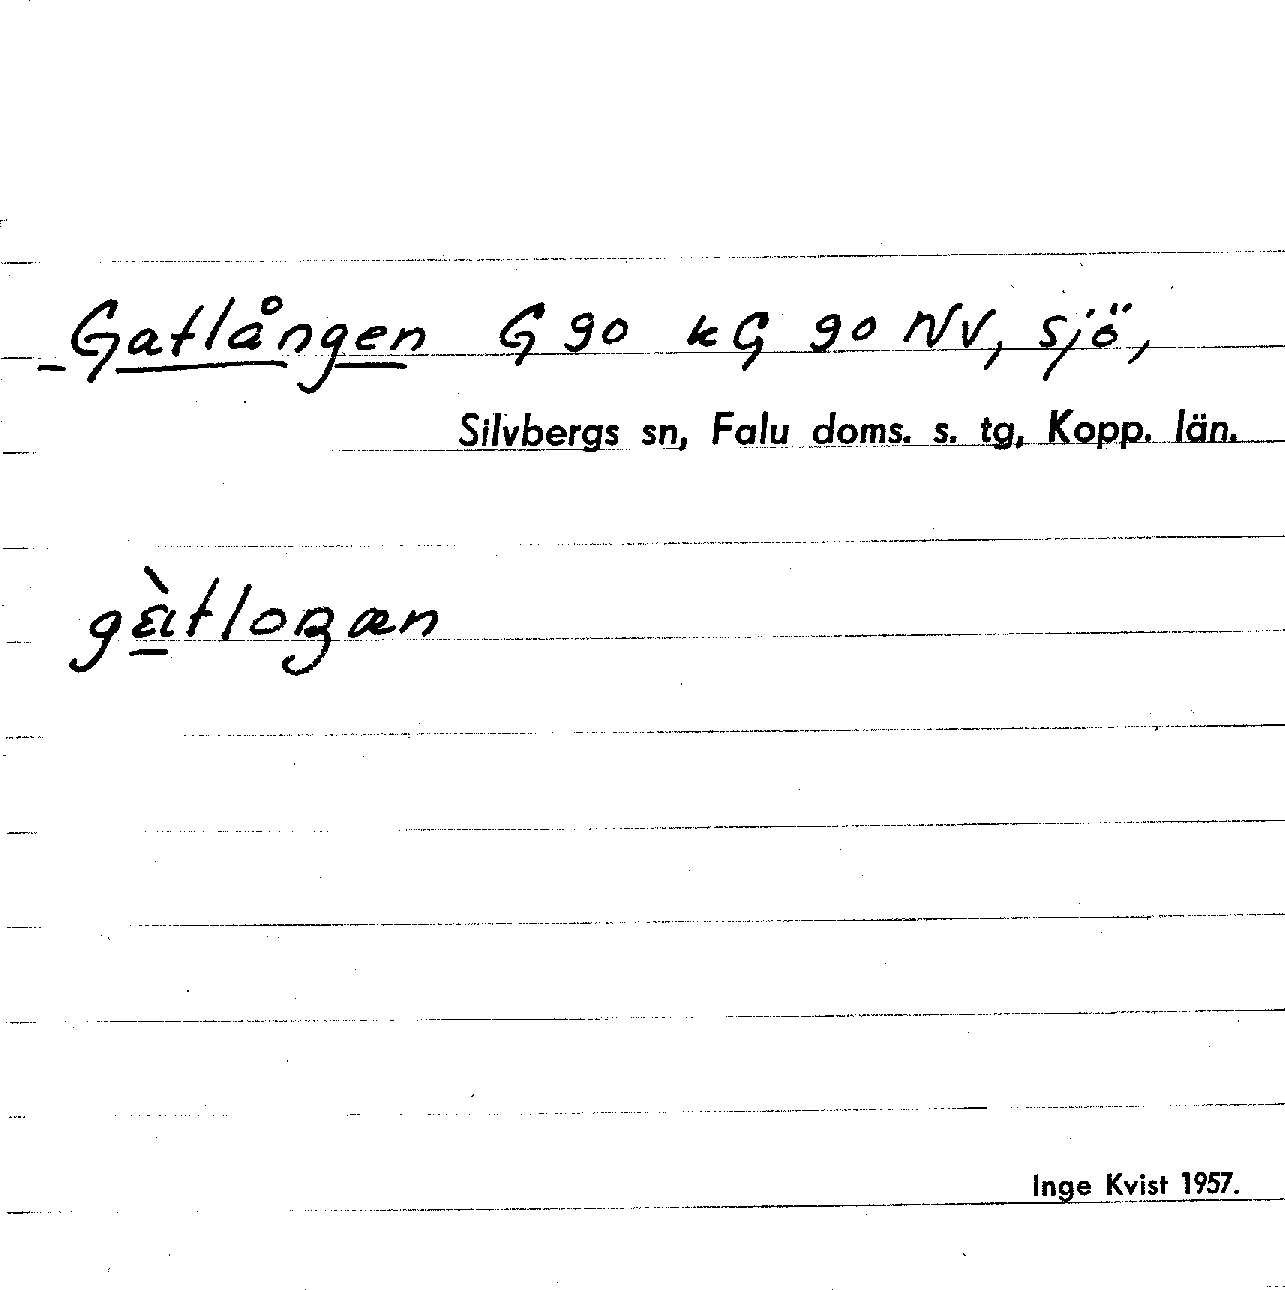 Gatlången G 90 kG 90 NV, sjö,
Silvbergs sn, Falu doms. s. tg, Kopp. län.
Inge Kvist 1957.